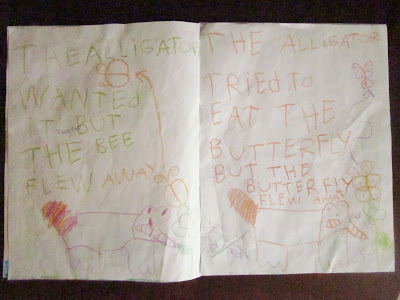 THE ALLIGATOR
WANTED
IT BUT
THE BEE
FLEW AWAY
THE ALLIGATOR
TRIED TO
EAT THE
BUTTERFLY
BUT THE
BUTTERFLY
FLEW AWAY